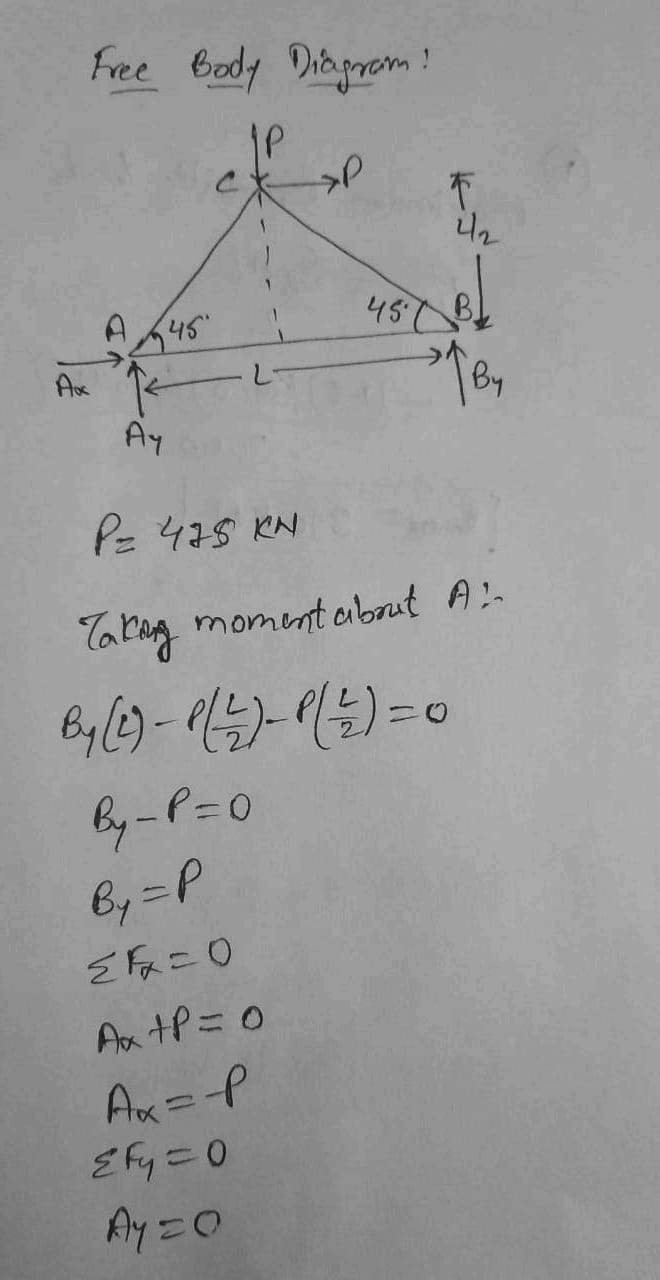 Free Body Diagram:
P
C P
L/2
A 45° 45° B
Ax L By
Ay
P= 475 KN
Taking moment about A :-
By(L) - P(L/2) - P(L/2) = 0
By - P = 0
By = P
ΣFx = 0
Ax + P = 0
Ax = -P
ΣFy = 0
Ay = 0